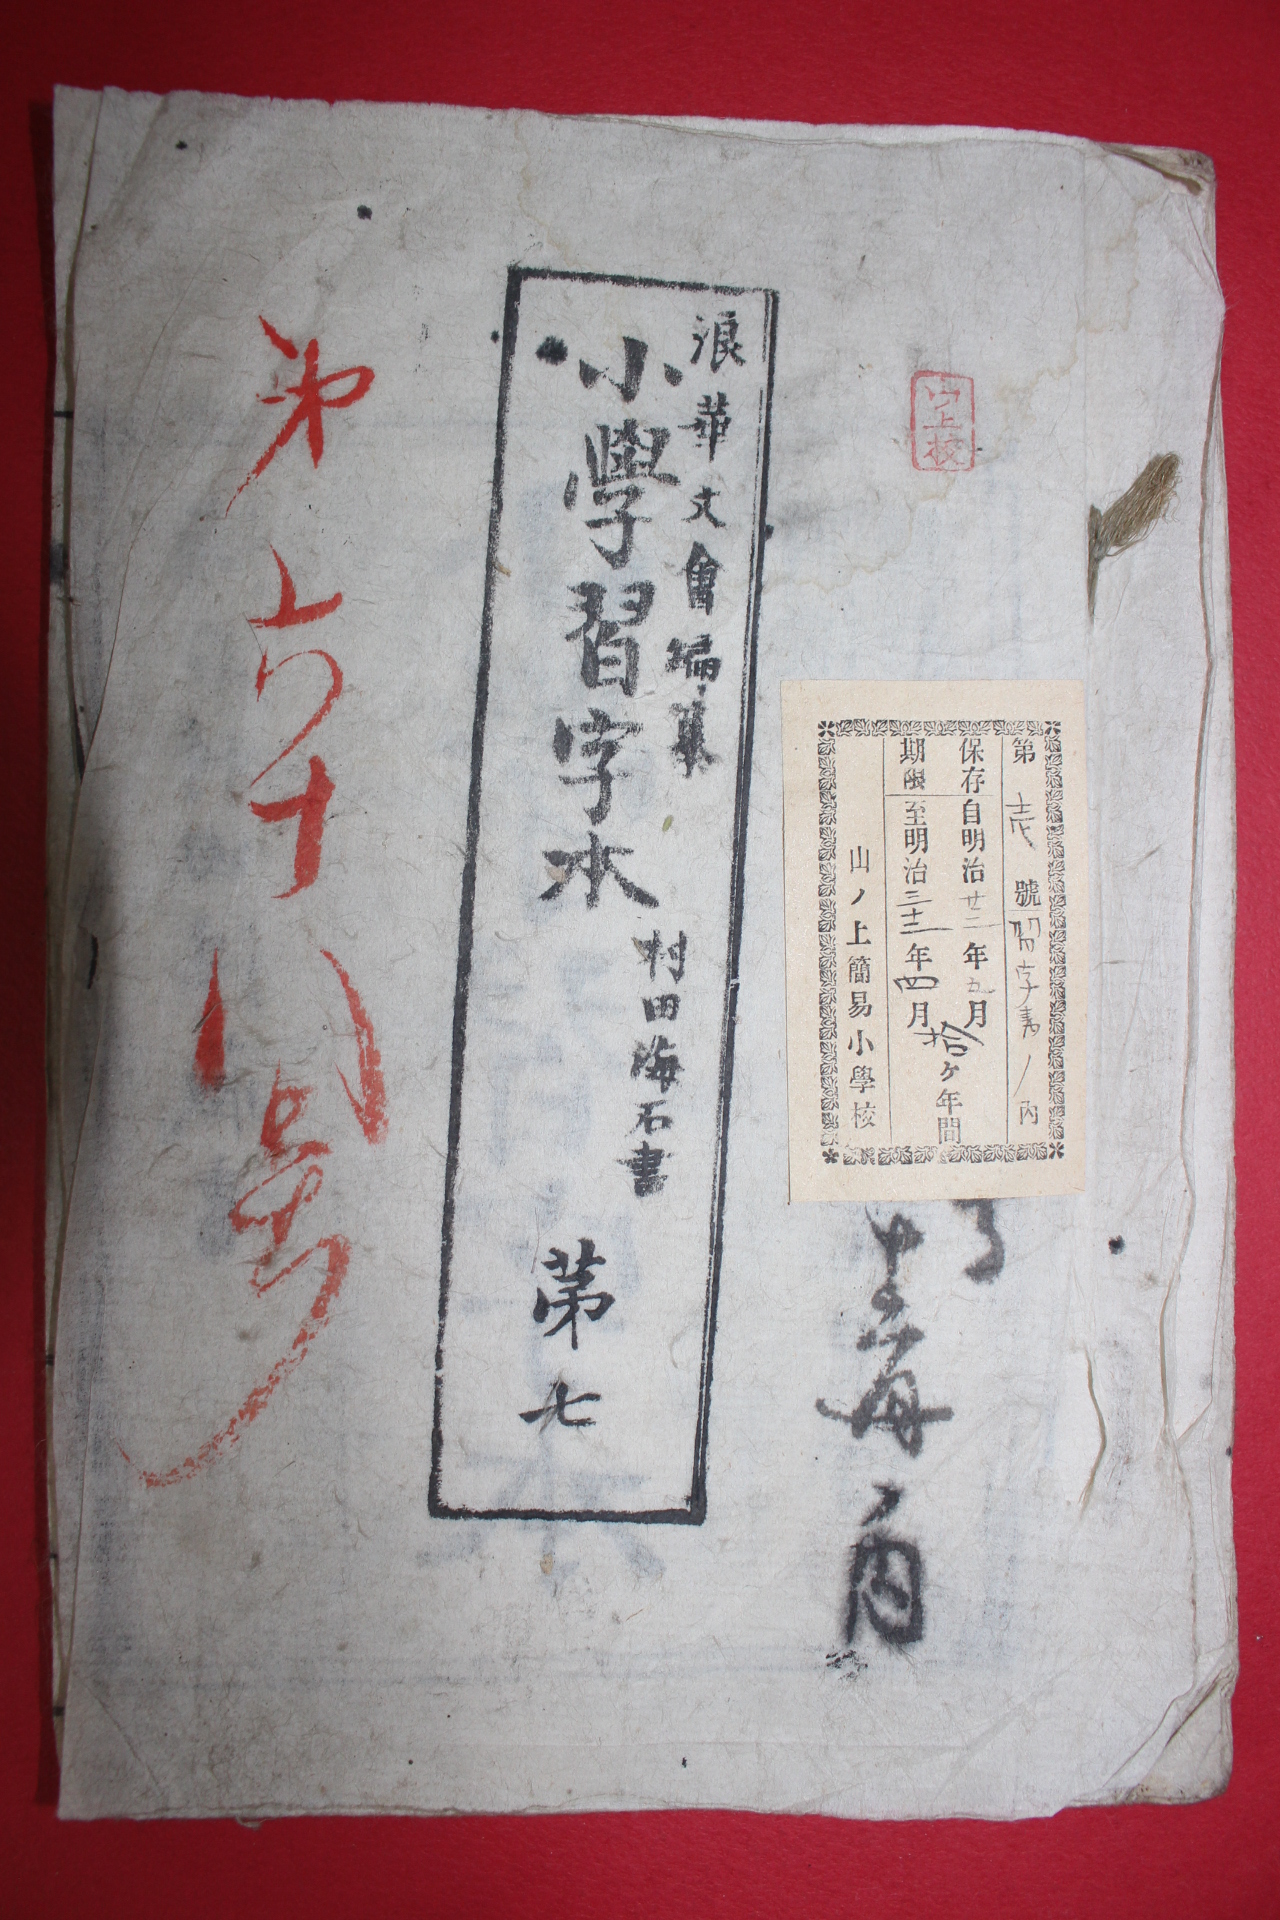 山上校
第壱號習字書ノ内
保存自明治廿二年五月
期限至明治三十二年四月
拾ヶ年間
山ノ上簡易小學校
十二毎ノ内
浪華文會編纂
小學習字本
村田海石書
第七
第六十八号